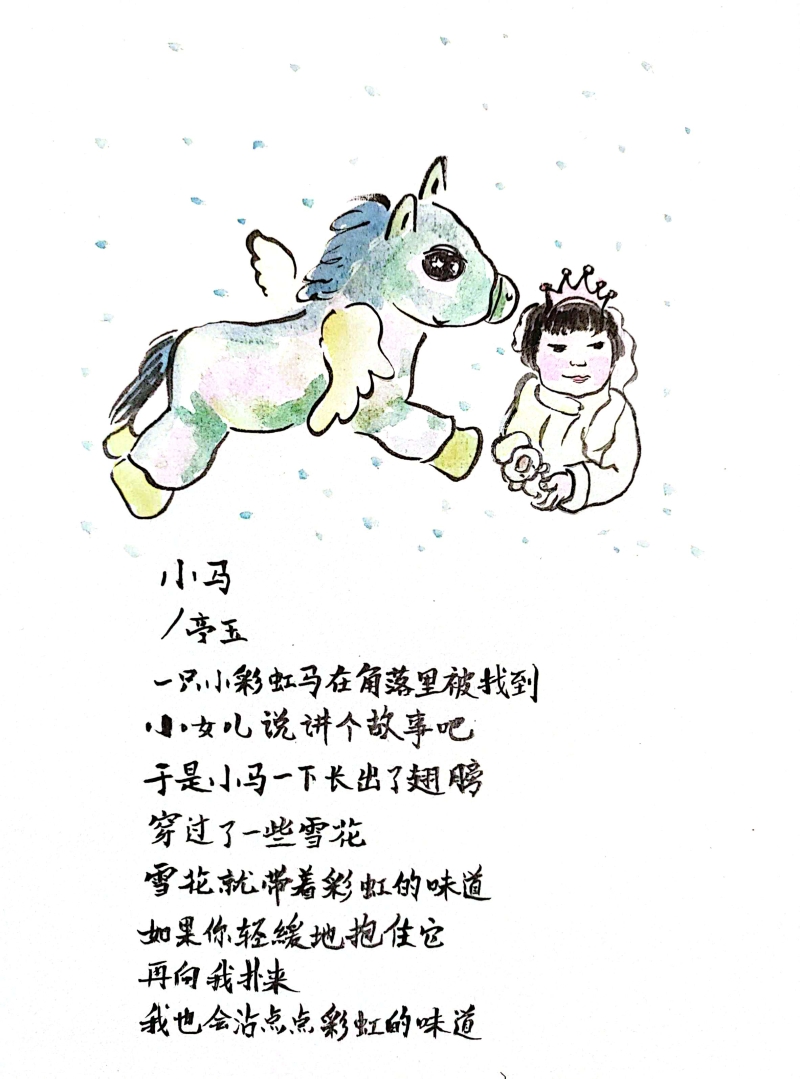 小马
/亭玉
一只小彩虹马在角落里被找到
小女儿说讲个故事吧
于是小马一下长出了翅膀
穿过了一些雪花
雪花就带着彩虹的味道
如果你轻缓地抱住它
再向我扑来
我也会沾点点彩虹的味道